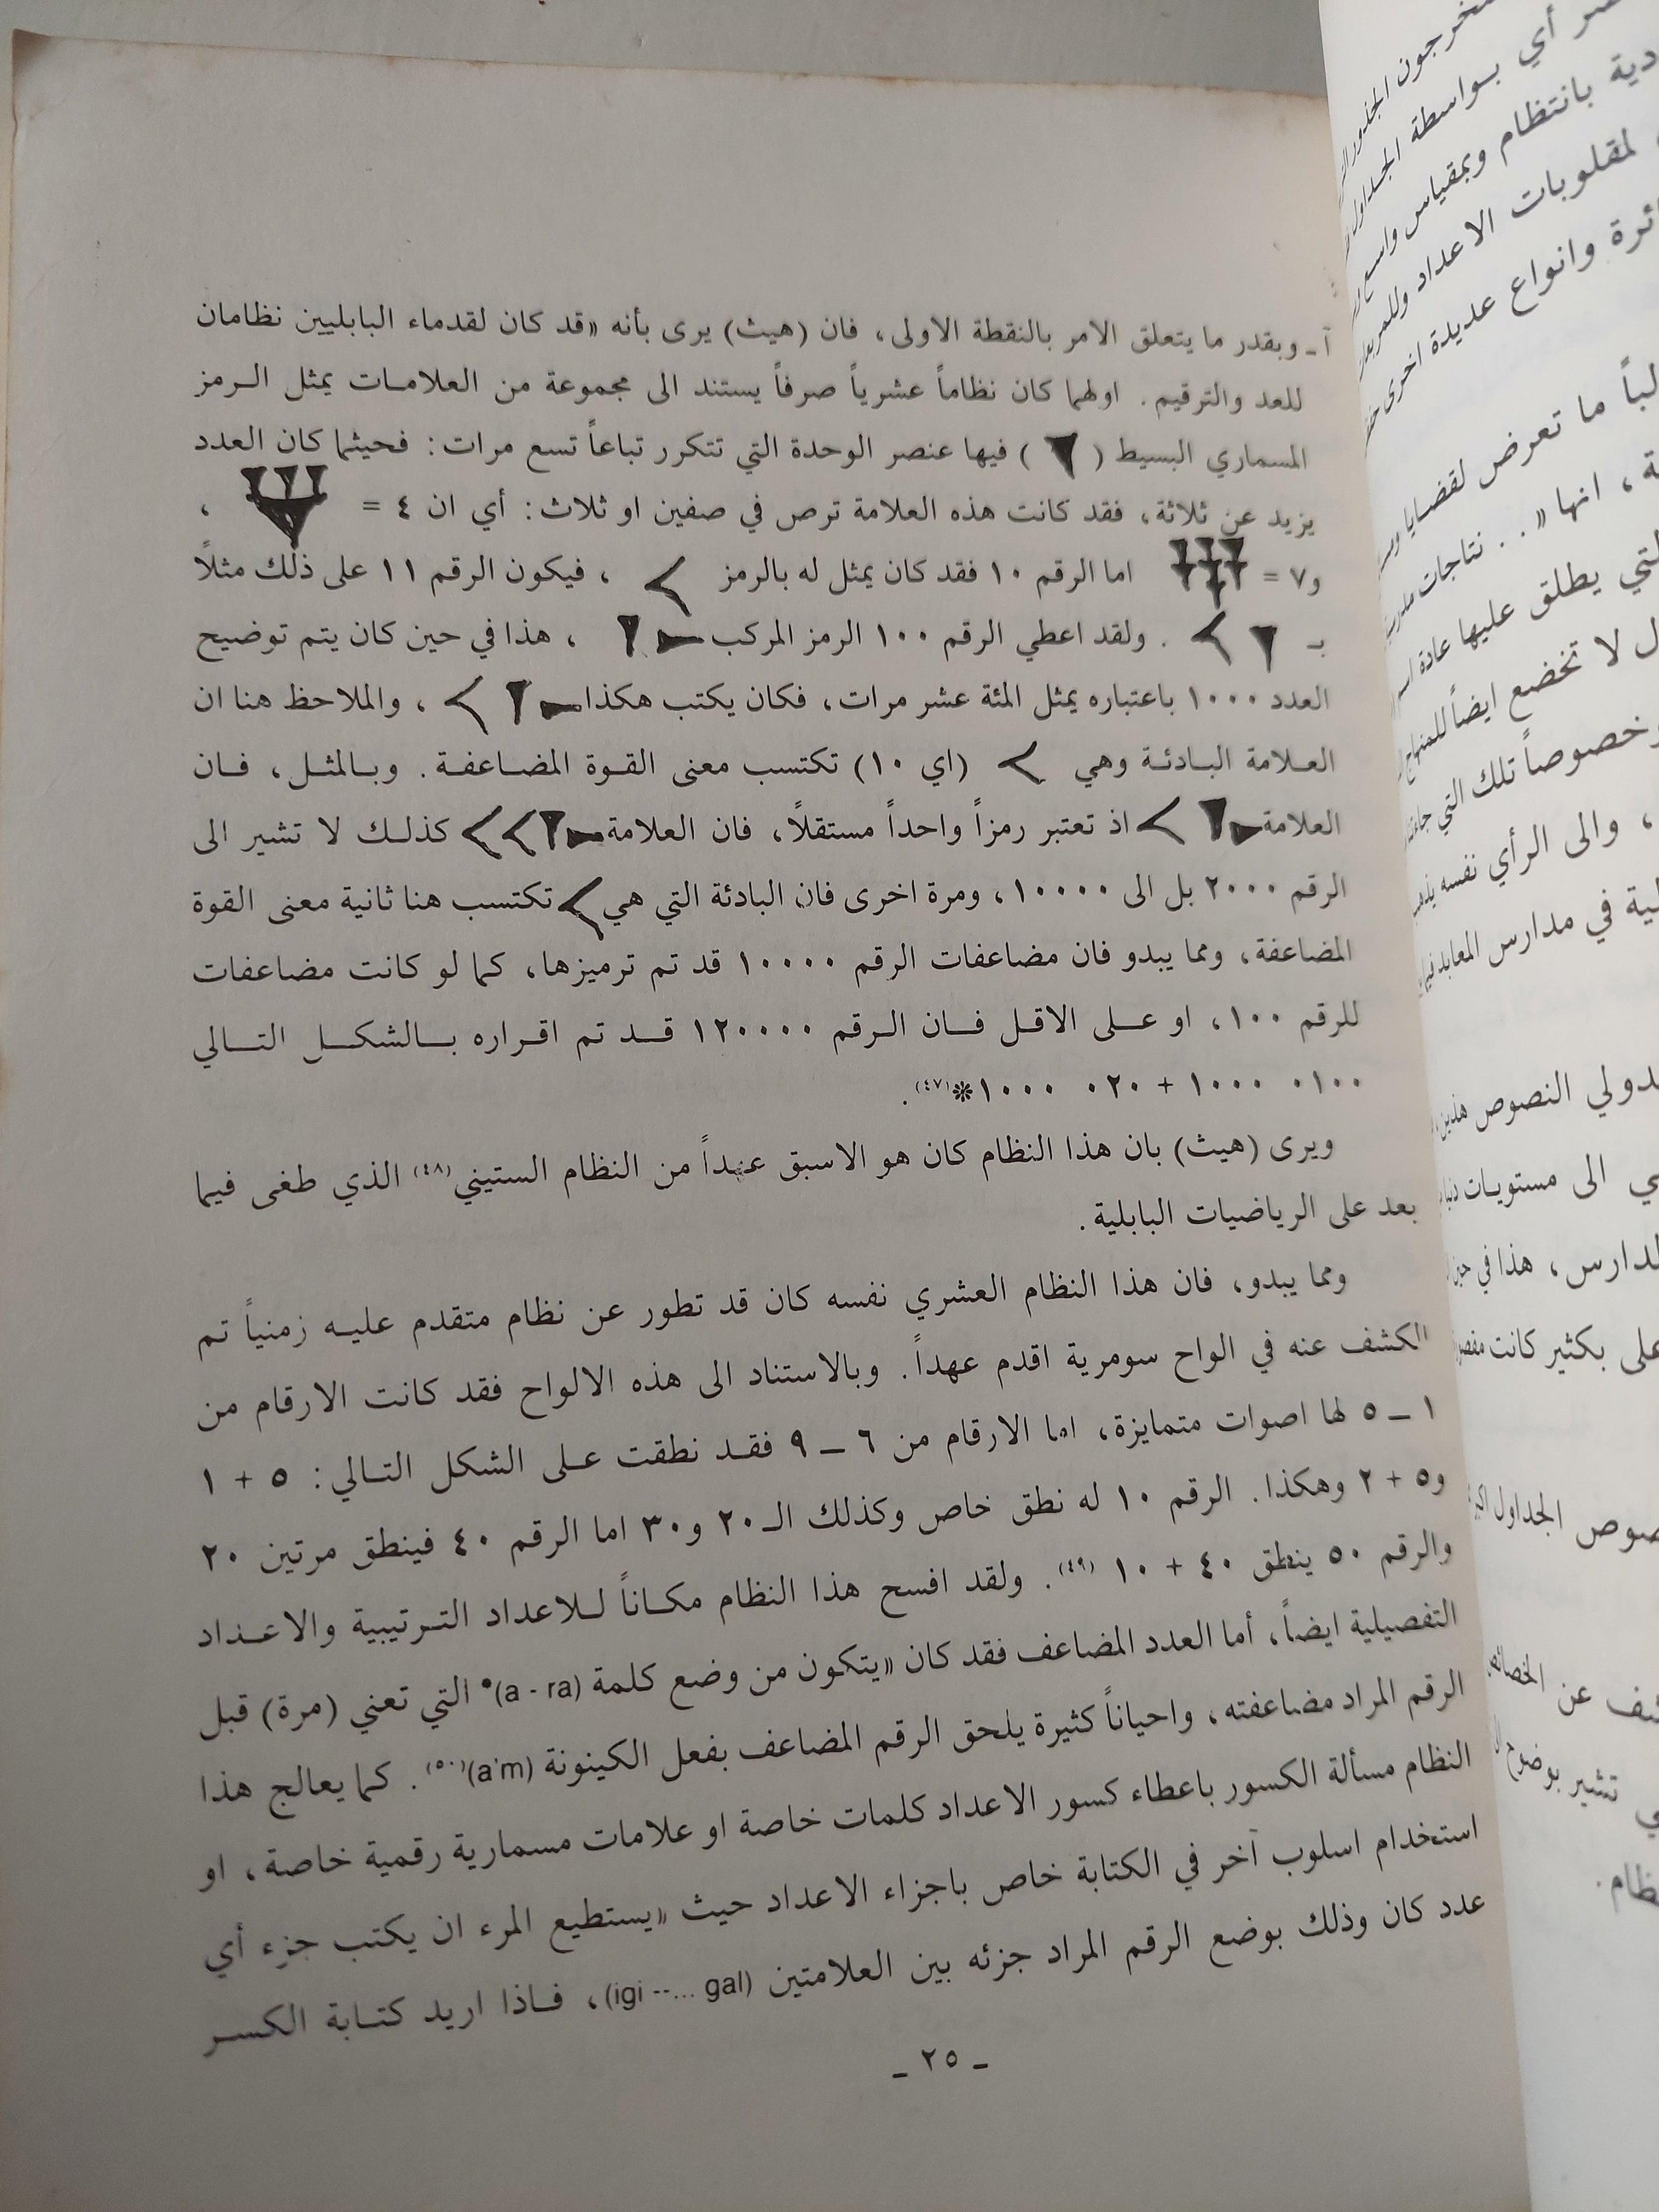 آ ـ وبقدر ما يتعلق الامر بالنقطة الاولى، فان (هيث) يرى بأنه «قد كان لقدماء البابليين نظامان
للعد والترقيم. اولهما كان نظاماً عشرياً صرفاً يستند الى مجموعة من العلامات يمثل الرمز
المسماري البسيط ( 𒁹 ) فيها عنصر الوحدة التي تتكرر تباعاً تسع مرات: فحيثما كان العدد
يزيد عن ثلاثة، فقد كانت هذه العلامة ترص في صفين او ثلاث: أي ان ٤ = ،
و٧ = اما الرقم ١٠ فقد كان يمثل له بالرمز 𒌋 ، فيكون الرقم ١١ على ذلك مثلاً
بـ 𒌋 𒁹 . ولقد اعطي الرقم ١٠٠ الرمز المركب ، هذا في حين كان يتم توضيح
العدد ١٠٠٠ باعتباره يمثل المئة عشر مرات، فكان يكتب هكذا ، والملاحظ هنا ان
العلامة البادئة وهي 𒌋 (اي ١٠) تكتسب معنى القوة المضاعفة. وبالمثل، فان
العلامة اذ تعتبر رمزاً واحداً مستقلاً، فان العلامة كذلك لا تشير الى
الرقم ٢٠٠٠ بل الى ١٠٠٠٠، ومرة اخرى فان البادئة التي هي 𒌋 تكتسب هنا ثانية معنى القوة
المضاعفة، ومما يبدو فان مضاعفات الرقم ١٠٠٠٠ قد تم ترميزها، كما لو كانت مضاعفات
للرقم ١٠٠، او على الاقل فان الرقم ١٢٠٠٠٠ قد تم اقراره بالشكل التالي
٠١٠٠ ١٠٠٠ + ٠٢٠ ١٠٠٠*(٤٧).
ويرى (هيث) بان هذا النظام كان هو الاسبق عهداً من النظام الستيني(٤٨) الذي طغى فيما
بعد على الرياضيات البابلية.
ومما يبدو، فان هذا النظام العشري نفسه كان قد تطور عن نظام متقدم عليه زمنياً تم
الكشف عنه في الواح سومرية اقدم عهداً. وبالاستناد الى هذه الالواح فقد كانت الارقام من
١ ـ ٥ لها اصوات متمايزة، اما الارقام من ٦ ـ ٩ فقد نطقت على الشكل التالي: ٥ + ١
و٥ + ٢ وهكذا. الرقم ١٠ له نطق خاص وكذلك الـ ٢٠ و٣٠ اما الرقم ٤٠ فينطق مرتين ٢٠
والرقم ٥٠ ينطق ٤٠ + ١٠ (٤٩). ولقد افسح هذا النظام مكاناً للاعداد الترتيبية والاعداد
التفصيلية ايضاً، أما العدد المضاعف فقد كان «يتكون من وضع كلمة (a - ra)• التي تعني (مرة) قبل
الرقم المراد مضاعفته، واحياناً كثيرة يلحق الرقم المضاعف بفعل الكينونة (a'm)(٥٠). كما يعالج هذا
النظام مسألة الكسور باعطاء كسور الاعداد كلمات خاصة او علامات مسمارية رقمية خاصة، او
استخدام اسلوب آخر في الكتابة خاص باجزاء الاعداد حيث «يستطيع المرء ان يكتب جزء أي
عدد كان وذلك بوضع الرقم المراد جزئه بين العلامتين (igi --... gal)، فاذا اريد كتابة الكسر
ـ ٢٥ ـ
أي بواسطة
بانتظام وبمقياس
لمقلوبات الاعداد
وانواع عديدة اخرى
ما تعرض لقضايا
، انها «.. نتاجات
يطلق عليها عادة
لا تخضع ايضاً
تلك التي
، والى الرأي نفسه
في مدارس المعابد
النصوص
الى مستويات
، هذا في
على بكثير كانت
الجداول
عن
تشير بوضوح